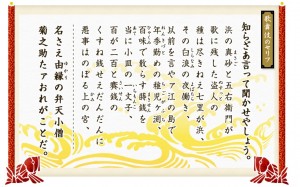 歌舞伎のセリフ
知らざあ言って聞かせやしょう。
浜の真砂と五右衛門が
歌に残した盗人の
種は尽きねえ七里が浜、
その白浪の夜働き、
以前を言やァ江の島で
年季勤めの稚児ヶ淵、
百味で散らす蒔銭を
当に小皿の一文子、
百が二百と賽銭の
くすね銭せえだんだんに
悪事はのぼる上の宮、
名さえ由縁の弁天小僧
菊之助たァおれがことだ。